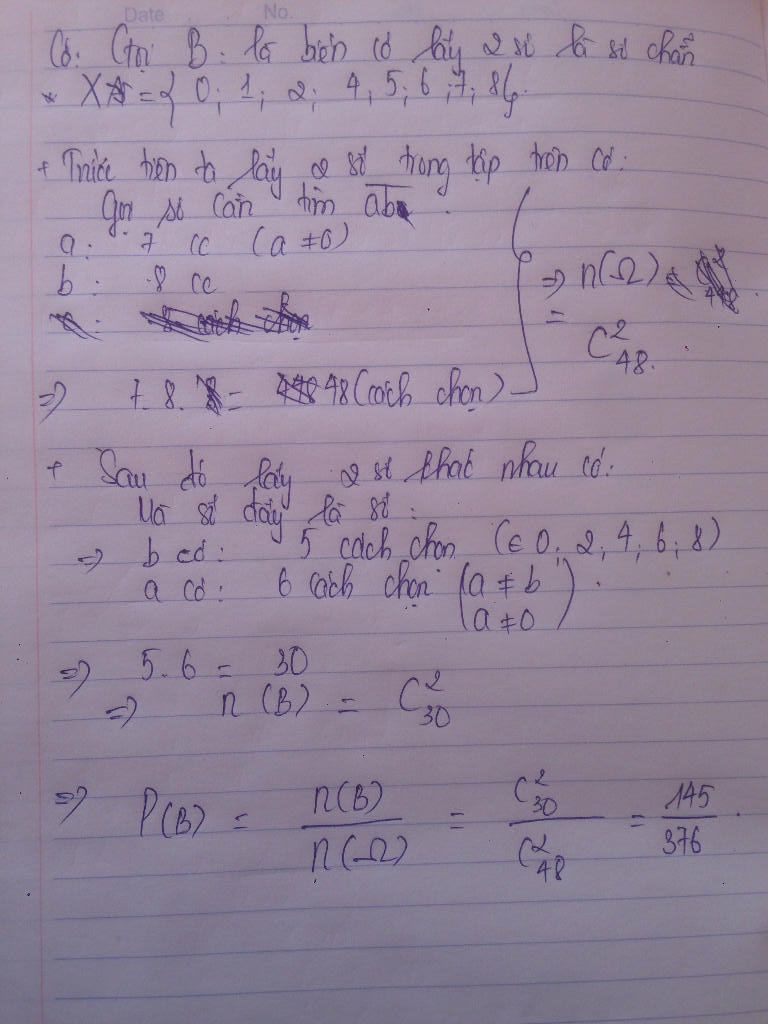 Date No.
Có: Gọi B: là biến cố lấy 2 số là số chẵn
* X = { 0; 1; 2; 4; 5; 6; 7; 8}.
+ Trước tiên ta lấy 2 số trong tập trên có:
Gọi số cần tìm ab.
a: 7 cc (a ≠ 0)
b: 8 cc
⇒ n(Ω)
=
C²₄₈.
⇒ 7. 8. = 48 (cách chọn)
+ Sau đó lấy 2 số khác nhau có:
Mà số đấy là số:
⇒ b có: 5 cách chọn (∈ 0; 2; 4; 6; 8)
a có: 6 cách chọn (a ≠ b
a ≠ 0).
⇒ 5. 6 = 30
⇒ n (B) = C²₃₀
⇒ P(B) = n(B) / n(Ω) = C²₃₀ / C²₄₈ = 145 / 376.